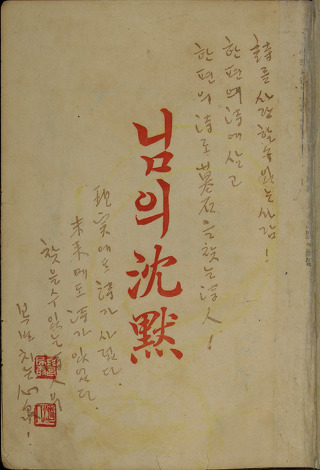 詩를 사랑할 수 있는 사람!
한편의 詩에 살고
한편의 詩로 墓石을 찾는 詩人!
님의 沈默
現実에도 詩가 사랐다.
未来에도 詩가 있었다.
찾을 수 있는
心泉!